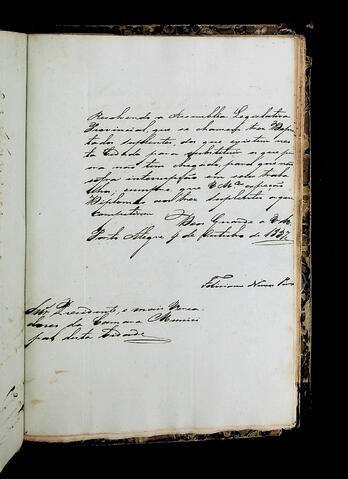 Resolvendo a Assemblea Legislativa
Provincial, que se chamem trez Depu
tados suplentes, dos que existem nes
ta Cidade para substituir os que
inda não tem chegado, para que não
sofra interrupção em seus traba
lhos; cumpre que VMces expeção
Diplomas aos trez suplentes a quem
competirem. Deos Guarde a VMces
Porto Alegre 9 de Outubro de 1837
Feliciano Nunes Pires
Snrs Presidente, e mais Verea
dores da Camara Munici
pal desta Cidade